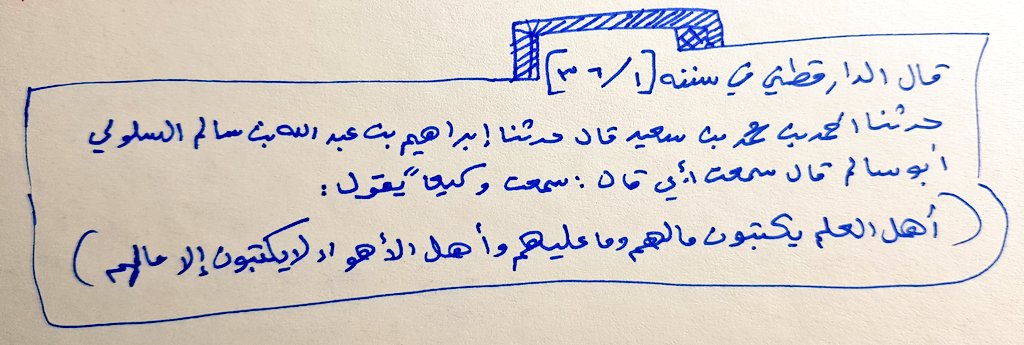 قال الدارقطني في سننه [١/٣٦]
حدثنا أحمد بن محمد بن سعيد قال حدثنا إبراهيم بن عبد الله بن سالم السلولي
أبو سالم قال سمعت أبي قال : سمعت وكيعاً يقول :
(أهل العلم يكتبون مالهم وما عليهم وأهل الأهواء لا يكتبون إلا مالهم)